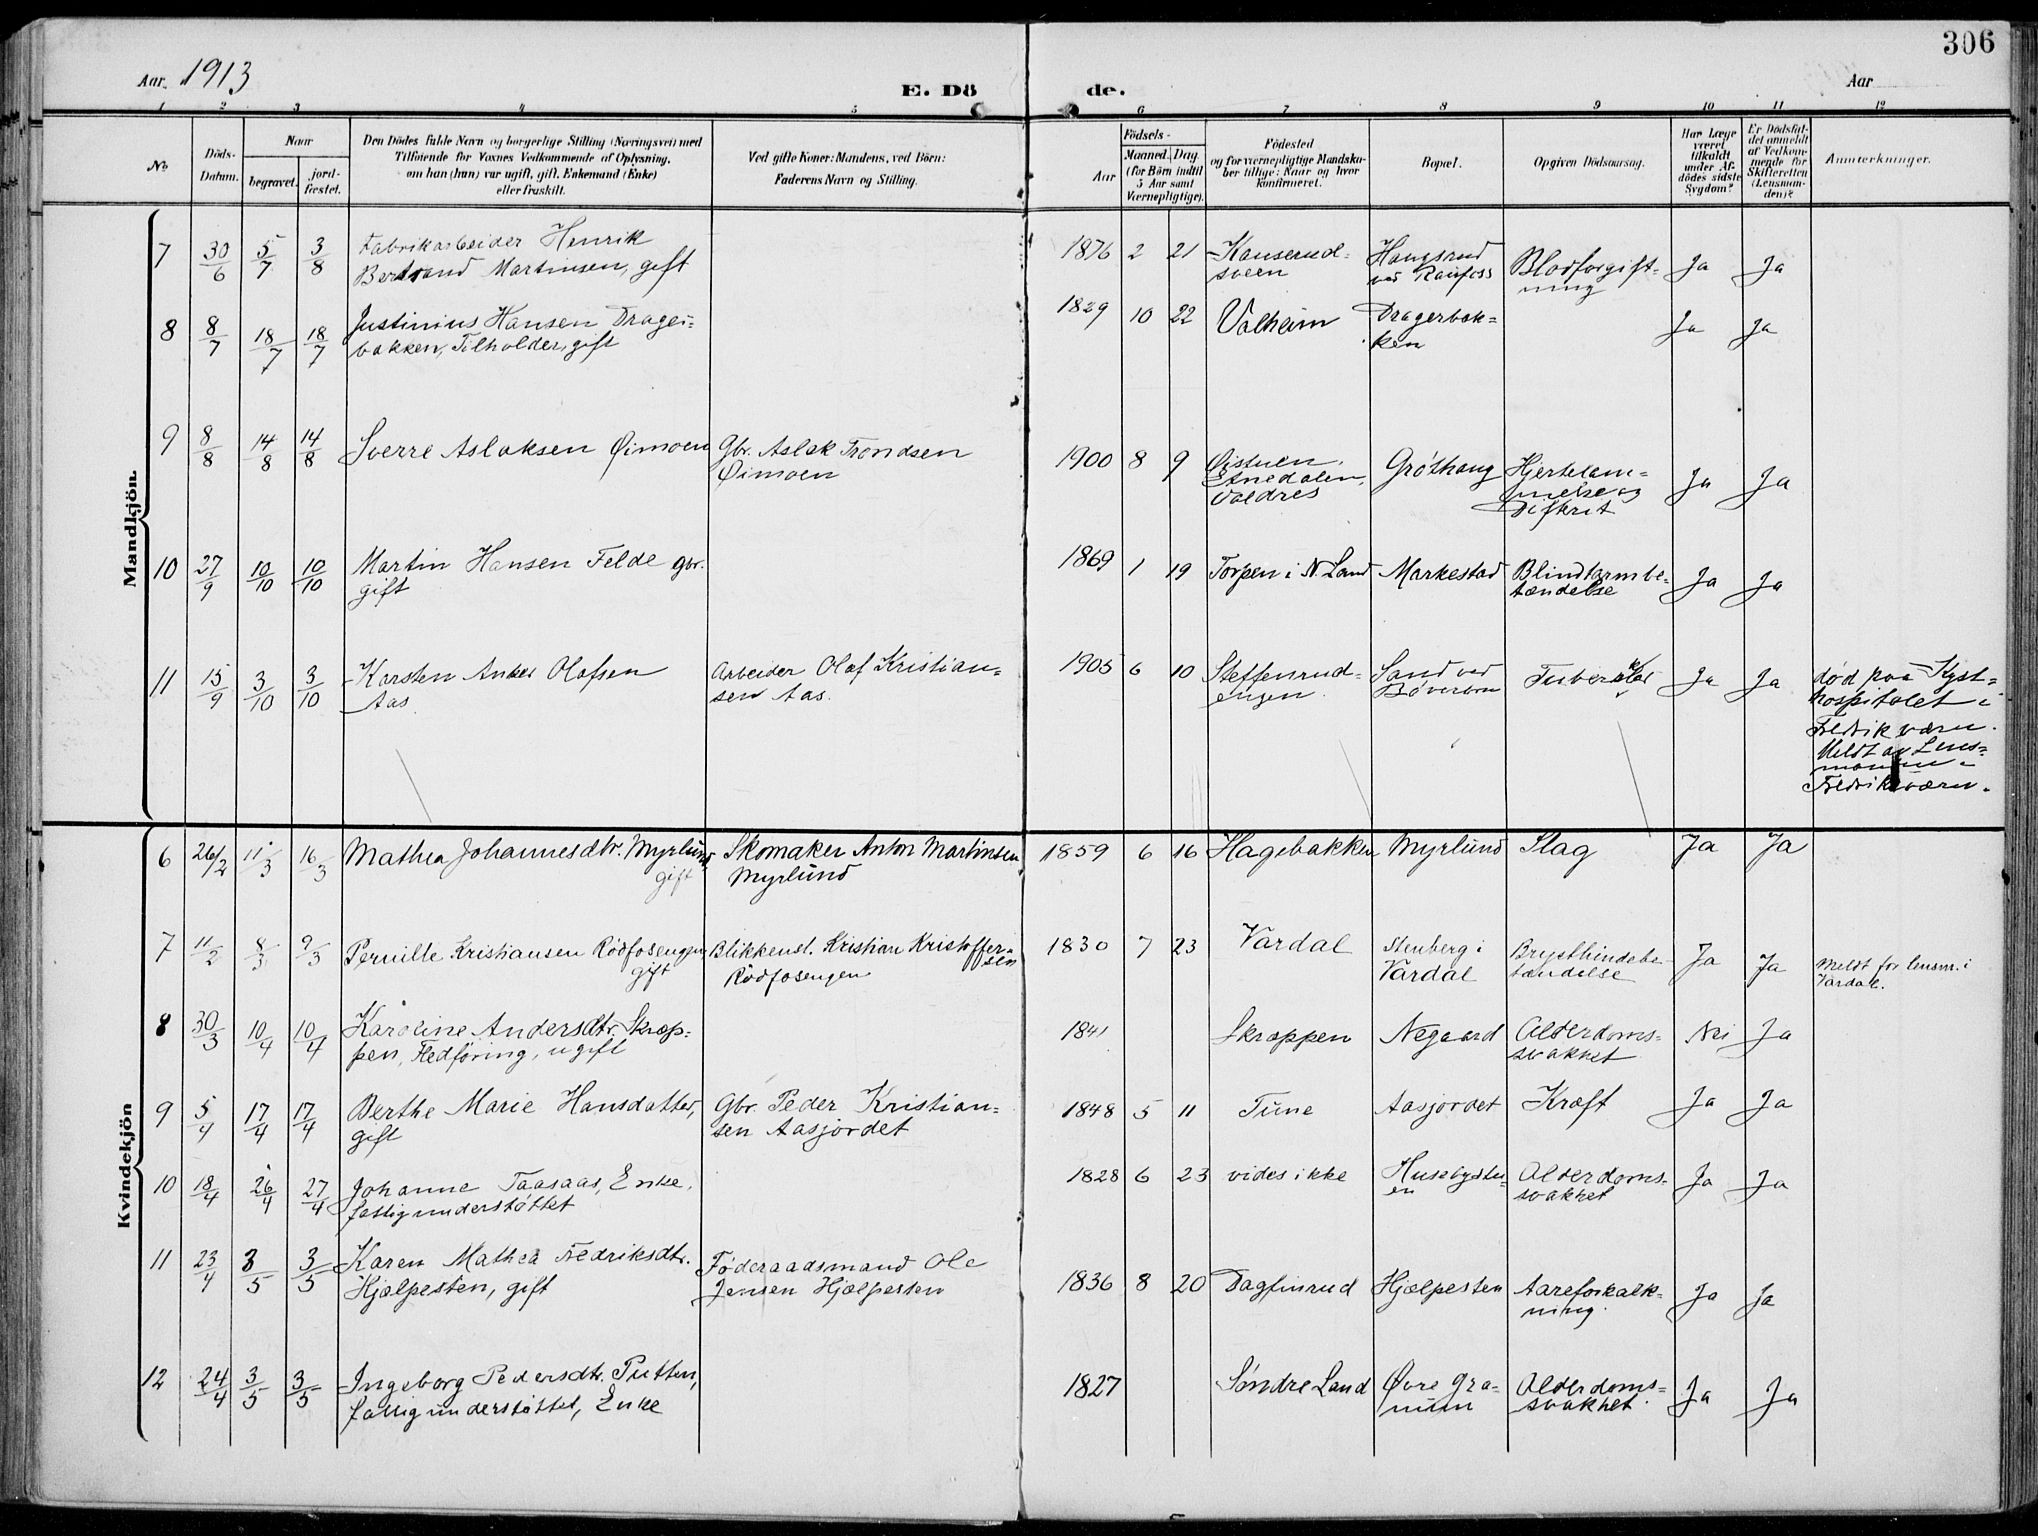 306
Aar 1913
E. Dö de.
Aar
1 2 3 4 5 6 7 8 9 10 11 12
No
Döds-Datum.
Naar
begravet.
jord-fæstet.
Den Dödes fulde Navn og borgerlige Stilling (Næringsvei) med
Tilföiende for Voxnes Vedkommende af Oplysning,
om han (hun) var ugift, gift, Enkemand (Enke)
eller fraskilt.
Ved gifte Koner: Mandens, ved Börn:
Faderens Navn og Stilling.
Födsels-
Aar
Maaned. Dag
(for Börn indtil
5 Aar samt
Værnepligtige).
Födested
og for værnepligtige Mandska-
ber tillige: Naar og hvor
konfirmeret.
Bopæl.
Opgiven Dödsaarsag.
Har Læge
været
tilkaldt
under Af-
dödes sidste
Sygdom?
Er Dödsfal-
det anmeldt
af Vedkom-
mende for
Skifteretten
(Lensman-
den)?
Anmerkninger.
Mandkjön.
7 30/6 5/7 3/8 Fabrikarbeider Henrik
Bertrand Martinsen, gift
1876 2 21 Kanserud-
sveen
Haugsrud
ved Raufoss
Blodforgift-
ning
Ja Ja
8 8/7 18/7 18/7 Justinius Hansen Drager-
bakken, Tilholder, gift
1829 10 22 Valheim
Dragerbak-
ken
Ja Ja
9 8/8 14/8 14/8 Sverre Aslaksen Øimoen
Gbr. Aslak Trondsen
Øimoen
1900 8 9 Øistuen,
Etnedalen,
Valdres
Gröthaug
Hjertelam-
melse og
Difterit
Ja Ja
10 27/9 10/10 10/10 Martin Hansen Felde gbr.
gift
1869 1 19 Torpen i N. Land
Markestad
Blindtarmbe-
tændelse
Ja Ja
11 15/9 3/10 3/10 Karsten Anker Olafsen
Aas
Arbeider Olaf Kristian-
sen Aas.
1905 6 10 Steffensrud-
engen
Sand ved
Bøverbru
Tuberkler
Ja Ja
død paa Kyst-
hospitalet i
Fredrikværn.
Meldt av Lens-
manden i
Fredriksværn.
Kvindekjön
6 26/2 11/3 16/3 Mathea Johannesdtr. Myrlund,
gift
Skomaker Anton Martinsen
Myrlund
1859 6 16 Hagebakken
Myrlund
Slag
Ja Ja
7 11/2 8/3 9/3 Pernille Kristiansen Rødfosengen
gift
Blikkensl. Kristian Kristoffer-
sen
Rødfosengen
1830 7 23 Vardal
Stenberg i
Vardal
Brysthindebe-
tændelse
Ja Ja
Meldt for lensm. i
Vardal.
8 30/3 10/4 10/4 Karoline Andersdtr. Skrap-
pen, Fledføring, ugift
1841
Skrappen
Negaard
Alderdoms-
svakhet
Nei Ja
9 5/4 17/4 17/4 Berthe Marie Hansdatter,
gift
Gbr. Peder Kristian-
sen Aasjordet
1848 5 11 Tune
Aasjordet
Kræft
Ja Ja
10 18/4 26/4 27/4 Johanne Taasaas, Enke,
fattigunderstøttet
1828 6 23 vides ikke
Husebystu-
en
Alderdoms-
svakhet
Ja Ja
11 23/4 3/5 3/5 Karen Mathea Fredriksdtr.
Hjælpesten, gift
Føderaadsmand Ole
Jensen Hjælpesten
1836 8 20 Dagfinrud
Hjælpesten
Aareforkalk-
ning.
Ja Ja
12 24/4 3/5 3/5 Ingeborg Pedersdtr. Putten,
fattigunderstøttet, Enke
1827
Søndre Land
Øvre Gra-
num
Alderdoms-
svakhet.
Ja Ja